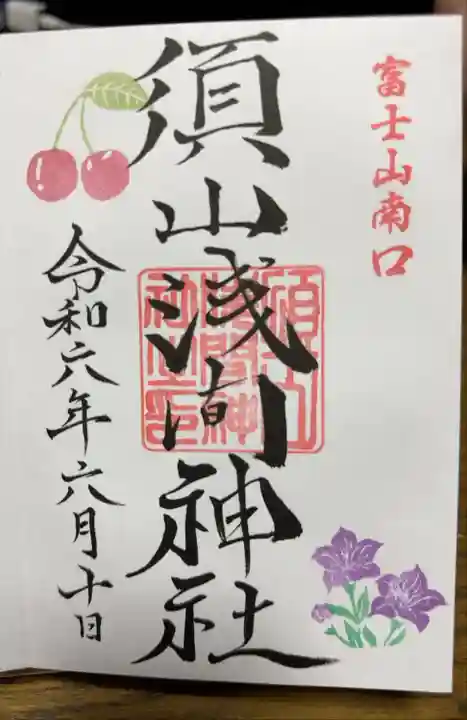 富士山南口
須山浅間神社
須山浅間神社之印
令和六年六月十日